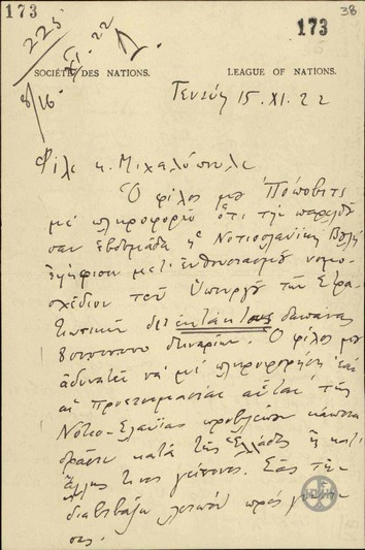 173
173
38
225
XI. 22
8/16
SOCIÉTÉ DES NATIONS.
LEAGUE OF NATIONS.
Γενεύη 15. XI. 22
Φίλε κ. Μιχαλόπουλε
Ὁ φίλος μου Πόποβιτς
μὲ πληροφορεῖ ὅτι τὴν παρελθοῦ
σαν ἑβδομάδα ἡ Νοτιοσλαυϊκὴ Βουλὴ
ἐψήφισεν μετ' ἐνθουσιασμοῦ νομο
σχέδιον τοῦ Ὑπουργοῦ τῶν Στρα
τιωτικῶν δι' ἐκτάκτους δαπάνας
δηναρίων. Ὁ φίλος μου
ἀδυνατεῖ νὰ μὲ πληροφορήσῃ ἐὰν
αἱ προετοιμασίαι αὗται τῆς
Νοτιο-Σλαυΐας προβλέπουν κάποια
δρᾶσιν κατὰ τῆς Ἑλλάδος ἢ κατ'
ἄλλης τινος γείτονος. Σᾶς τὴν
διαβιβάζω λοιπὸν πρὸς γνῶσιν
σας.